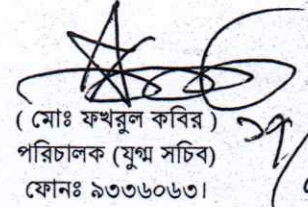 ( মোঃ ফখরুল কবির )
পরিচালক (যুগ্ম সচিব)
ফোনঃ ৯৩৩৬০৬৩।